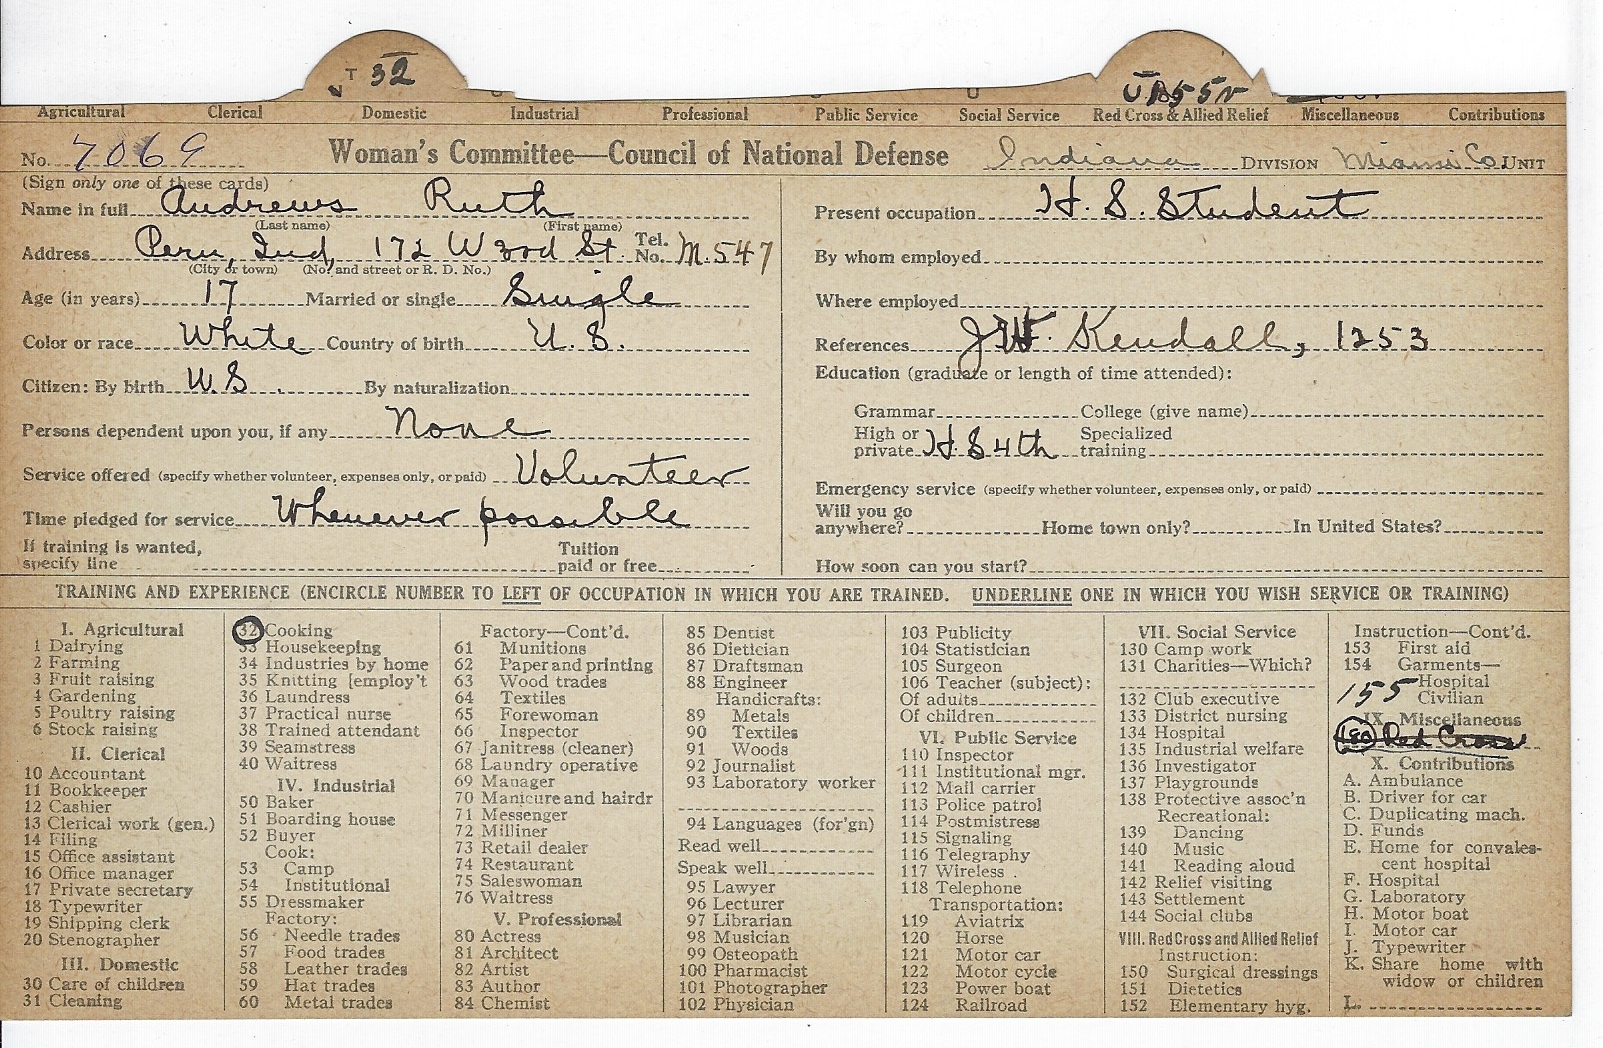 T 32
U 155
Agricultural Clerical Domestic Industrial Professional Public Service Social Service Red Cross & Allied Relief Miscellaneous Contributions
No. 7069 Woman's Committee—Council of National Defense Indiana DIVISION Miami Co. UNIT
(Sign only one of these cards)
Name in full Andrews Ruth
(Last name) (First name)
Address Peru, Ind, 172 W 3rd St. Tel. No. M.547
(City or town) (No. and street or R. D. No.)
Age (in years) 17 Married or single Single
Color or race White Country of birth U.S.
Citizen: By birth U.S. By naturalization
Persons dependent upon you, if any None
Service offered (specify whether volunteer, expenses only, or paid) Volunteer
Time pledged for service Whenever possible
If training is wanted,
specify line
Tuition
paid or free
Present occupation H. S. Student
By whom employed
Where employed
References J.W. Kendall, 1253
Education (graduate or length of time attended):
Grammar College (give name)
High or
private H.S 4th
Specialized
training
Emergency service (specify whether volunteer, expenses only, or paid)
Will you go
anywhere? Home town only? In United States?
How soon can you start?
TRAINING AND EXPERIENCE (ENCIRCLE NUMBER TO LEFT OF OCCUPATION IN WHICH YOU ARE TRAINED. UNDERLINE ONE IN WHICH YOU WISH SERVICE OR TRAINING)
I. Agricultural
1 Dairying
2 Farming
3 Fruit raising
4 Gardening
5 Poultry raising
6 Stock raising
II. Clerical
10 Accountant
11 Bookkeeper
12 Cashier
13 Clerical work (gen.)
14 Filing
15 Office assistant
16 Office manager
17 Private secretary
18 Typewriter
19 Shipping clerk
20 Stenographer
III. Domestic
30 Care of children
31 Cleaning
32 Cooking
33 Housekeeping
34 Industries by home
35 Knitting [employ't
36 Laundress
37 Practical nurse
38 Trained attendant
39 Seamstress
40 Waitress
IV. Industrial
50 Baker
51 Boarding house
52 Buyer
Cook:
53 Camp
54 Institutional
55 Dressmaker
Factory:
56 Needle trades
57 Food trades
58 Leather trades
59 Hat trades
60 Metal trades
Factory—Cont'd.
61 Munitions
62 Paper and printing
63 Wood trades
64 Textiles
65 Forewoman
66 Inspector
67 Janitress (cleaner)
68 Laundry operative
69 Manager
70 Manicure and hairdr
71 Messenger
72 Milliner
73 Retail dealer
74 Restaurant
75 Saleswoman
76 Waitress
V. Professional
80 Actress
81 Architect
82 Artist
83 Author
84 Chemist
85 Dentist
86 Dietician
87 Draftsman
88 Engineer
Handicrafts:
89 Metals
90 Textiles
91 Woods
92 Journalist
93 Laboratory worker
94 Languages (for'gn)
Read well
Speak well
95 Lawyer
96 Lecturer
97 Librarian
98 Musician
99 Osteopath
100 Pharmacist
101 Photographer
102 Physician
103 Publicity
104 Statistician
105 Surgeon
106 Teacher (subject):
Of adults
Of children
VI. Public Service
110 Inspector
111 Institutional mgr.
112 Mail carrier
113 Police patrol
114 Postmistress
115 Signaling
116 Telegraphy
117 Wireless
118 Telephone
Transportation:
119 Aviatrix
120 Horse
121 Motor car
122 Motor cycle
123 Power boat
124 Railroad
VII. Social Service
130 Camp work
131 Charities—Which?
132 Club executive
133 District nursing
134 Hospital
135 Industrial welfare
136 Investigator
137 Playgrounds
138 Protective assoc'n
Recreational:
139 Dancing
140 Music
141 Reading aloud
142 Relief visiting
143 Settlement
144 Social clubs
VIII. Red Cross and Allied Relief
Instruction:
150 Surgical dressings
151 Dietetics
152 Elementary hyg.
Instruction—Cont'd.
153 First aid
154 Garments—
Hospital
155 Civilian
IX. Miscellaneous
Red Cross
X. Contributions
A. Ambulance
B. Driver for car
C. Duplicating mach.
D. Funds
E. Home for convales-
cent hospital
F. Hospital
G. Laboratory
H. Motor boat
I. Motor car
J. Typewriter
K. Share home with
widow or children
L.